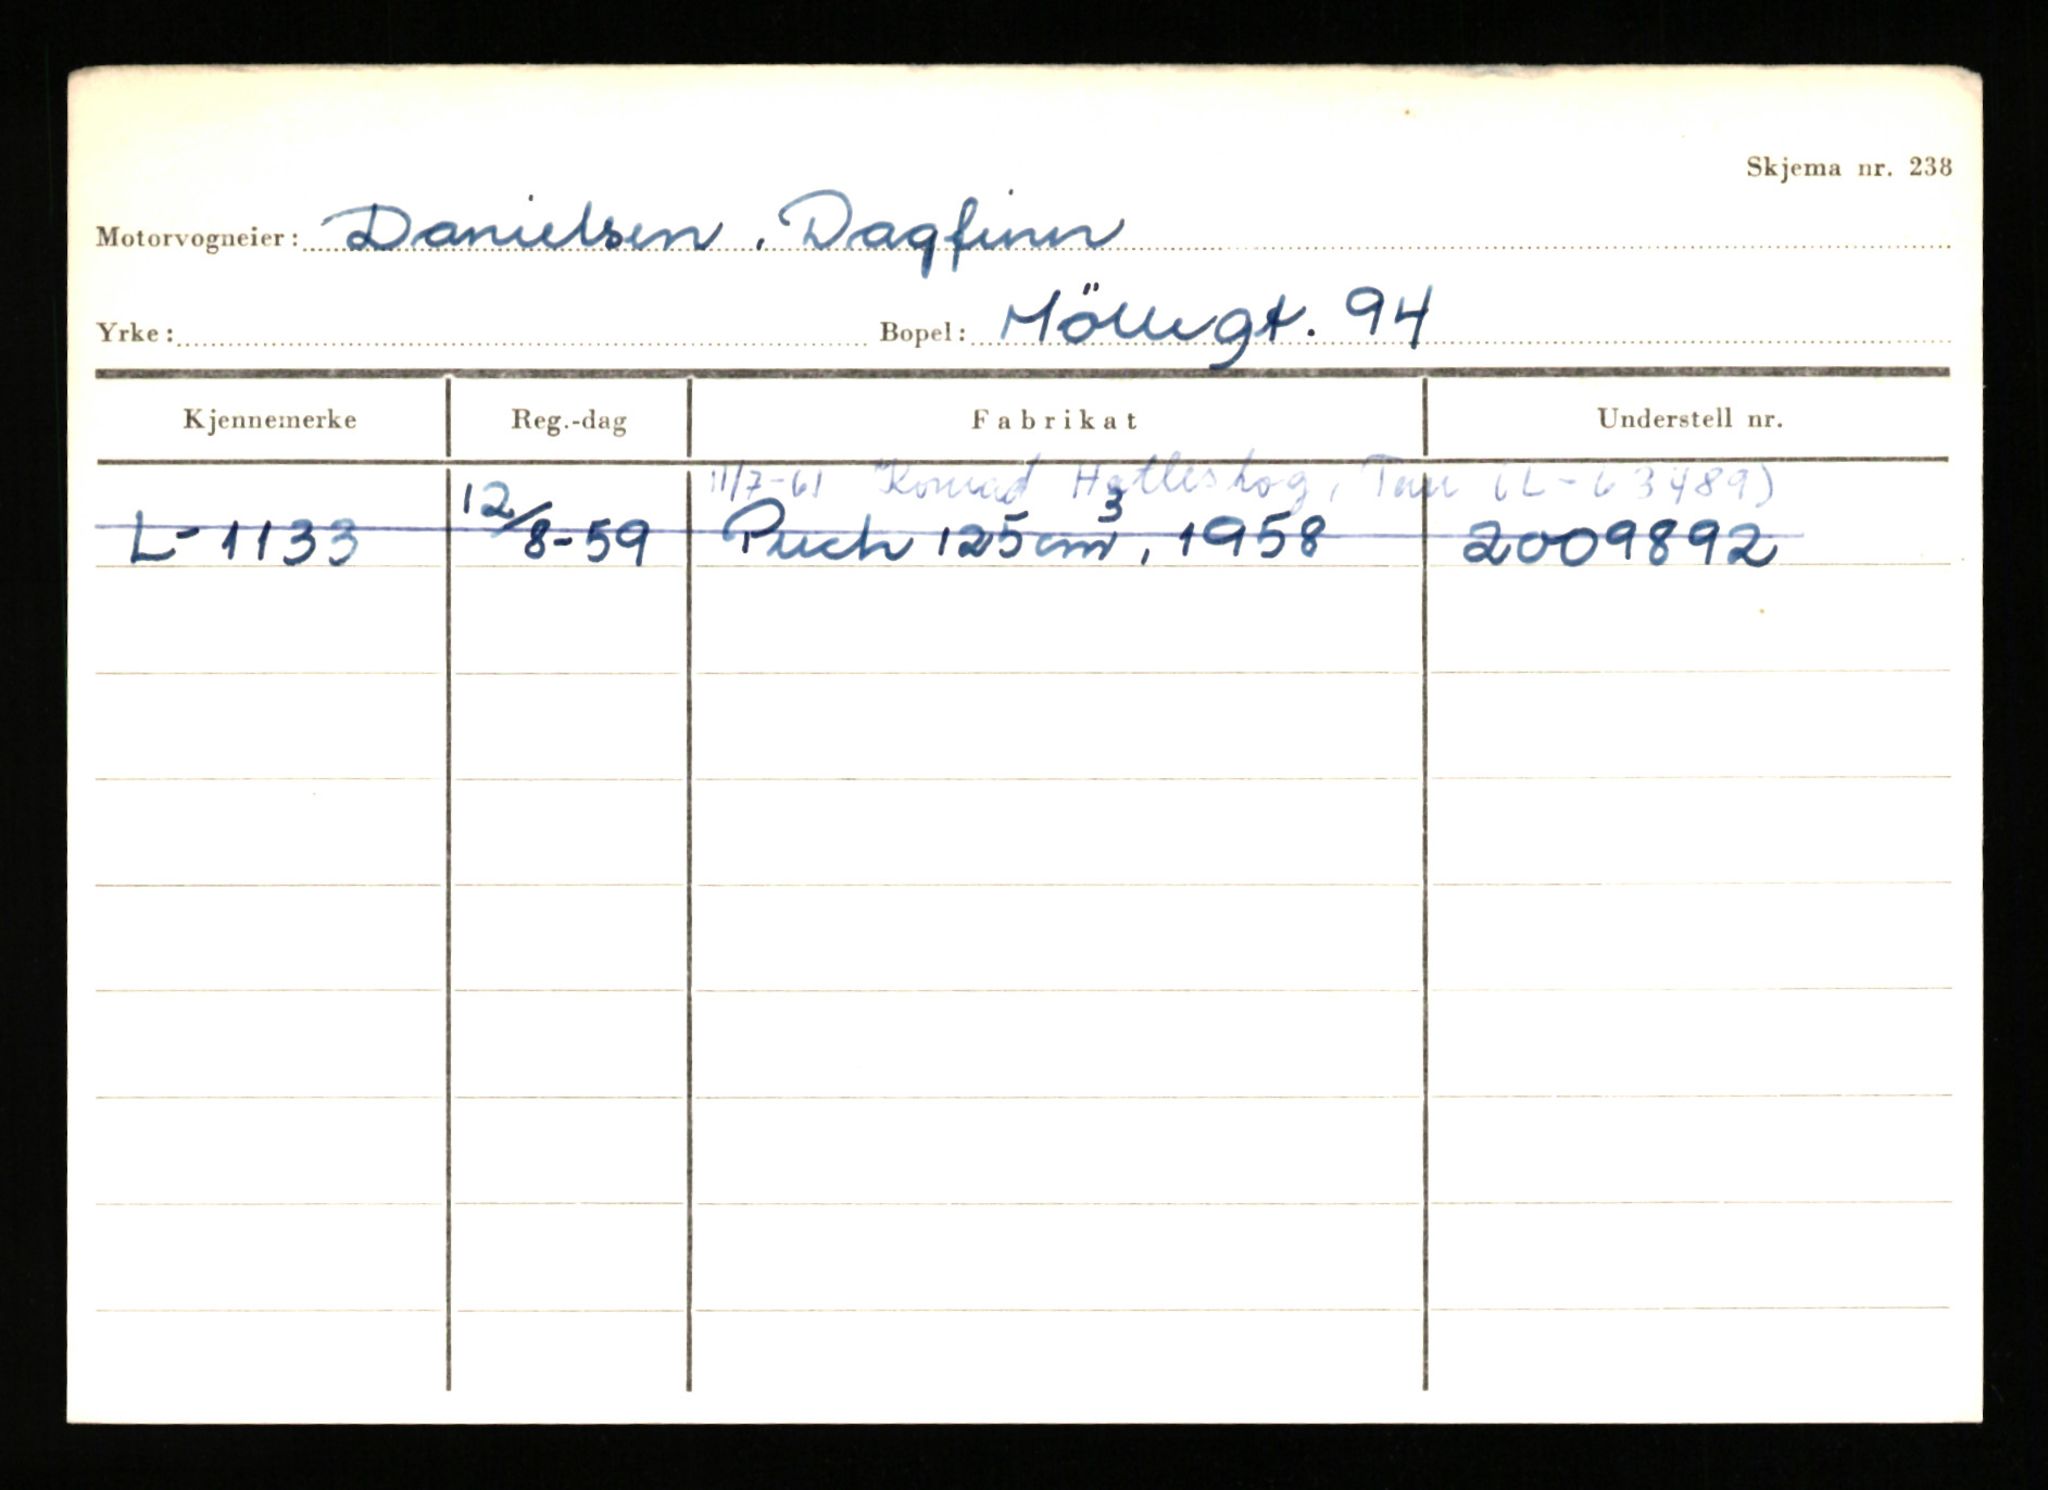 Skjema nr. 238
Motorvogneier: Danielsen, Dagfinn
Yrke: Bopel: Möllegt. 94
Kjennemerke Reg.-dag Fabrikat Understell nr.
11/7-61 Konrad Hatleskog, Tau (L-63489)
L-1133 12/8-59 Puch 125 cm³, 1958 2009892